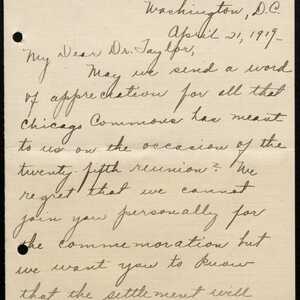 Washington, D.C.
April 21, 1919-
My Dear Dr. Taylor,
May we send a word
of appreciation for all that
Chicago Commons has meant
to us on the occasion of the
twenty fifth reunion? We
regret that we cannot
join you personally for
the commemoration but
we want you to know
that the settlement will